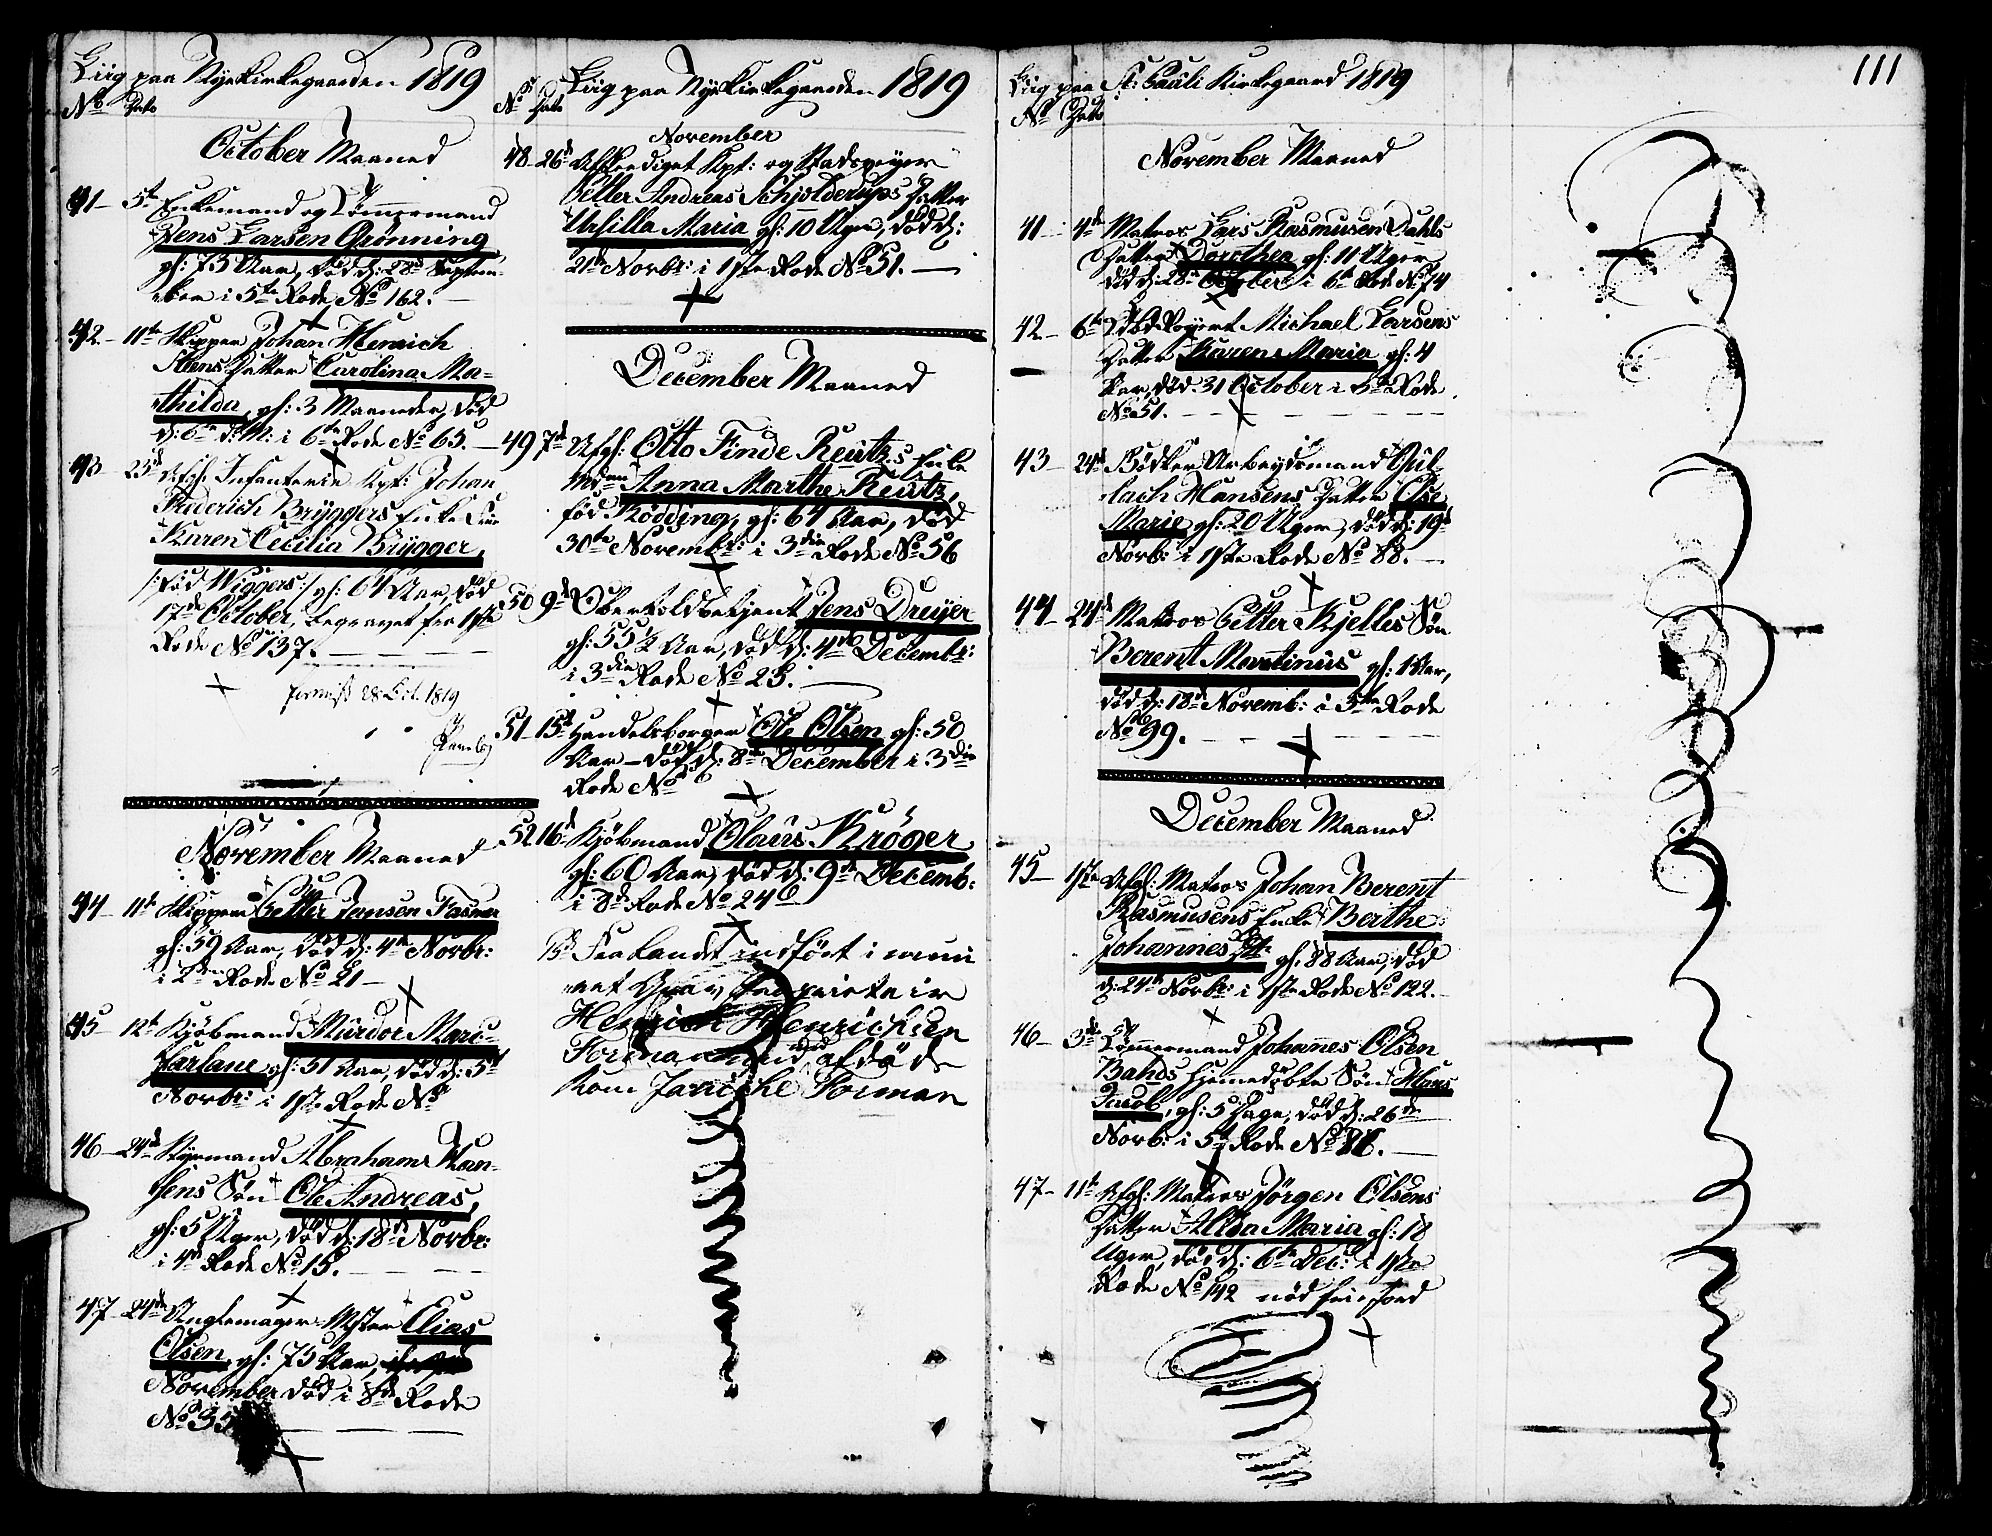 Liig paa Nyekirkegaarden 1819
No Dato
October Maaned
41 – 5te Enkemand og Tømmermand
Jens Larsen Grønning
gl: 73 Aar, død d: 28de Septem-
ber i 5te Rode No 162.
42 – 11te Skipper Johan Henrich
Datter Carolina Ma-
thilda, gl: 3 Maaneder, død
d: 6te d: M: i 6te Rode No 65. –
43 – 23d Afg: Infanterie Kpt: Johan
Frederich Bryggers Enke
Karen Cecilia Brygger,
/: fød Wiggers :/ gl: 64 Aar, død
17de October, begravet fra 1ste
Rode No 137.
28 Oct. 1819
November Maaned
44 – 11te Skipper Petter Jansen Fasmer
gl: 59 Aar, død d: 4de Novbr:
i Rode No 21 –
45 – 12te Kjøbmand Murdoc Marc-
farlane gl: 51 Aar, død d: 5te
Novbr: i 1ste Rode No
46 – 24de Abrahams Han-
sens Søn Ole Andreas,
gl: 5 Uger, død d: 18de Novbr:
i 4de Rode No 15.
47 – 24de Elias
Olsen, gl: 75 Aar,
November død i 8de Rode
No 35
Liig paa Nyekirkegaarden 1819
No Dato
November
48 26de Afskediget Kpt: og
Petter Andreas Schjolderups Datter
Ursilla Maria gl: 10 Uger, død d:
21de Novbr: i 1ste Rode No 51. –
December Maaned
49 7de Afg: Otto Finde Reutz's Enke
Madam Anna Marthe Reutz,
fød Rødding, gl: 64 Aar, død
30te Novembr: i 3die Rode No 56
50 9de Overtoldbetjent Jens Dreyer
gl: 55½ Aar, død d: 4de Decembr:
i 3die Rode No 25.
51 – 15de Handelsborger Ole Olsen gl: 50
Aar – død d: 8de December i 3die
Rode No
52 16de Kjøbmand Claus Krøger
gl: 60 Aar, død d: 9de Decemb:
i 8de Rode No 246
Fra Landet indført i
Henrich Henrichsen
Forman afdøde
Kone Forman
Liig paa St: Pauli Kirkegaard 1819
No Dato
111
November Maaned
41 – 4de Matros Lars Rasmusen Dahls
Datter Dorothea gl: 11 Uger
død d: 28de October i 6te Rode No 74
42 – 6te Michael Larsens
Datter Karen Maria gl: 4
Aar, død 31 October i 5te Rode
No 51.
43 – 24de Bødker Arbeydsmand Gul-
lach Hansens Datter Else
Marie gl: 20 Uger, død d: 19de
Novb: i 1ste Rode No 88. –
44 – 24de Matros Petter Kjelles Søn
Berent Martinus gl: 1 Aar,
død d: 18de Novemb: i 5te Rode
No 99.
December Maaned
45 – 1ste Afg: Matros Johan Berent
Rasmusens Enke Berthe
Johannes Dt: gl: 88 Aar, død
d: 24de Novbr: i 1ste Rode No 122. –
46 – 3de Tømmermand Johannes Olsen
Bahds hjemedøbte Søn Claus
Jacob, gl: 5 Dage, død d: 26de
Novb: i 5te Rode No 86. –
47 – 11te Afg: Matros Jørgen Olsens
Datter Alida Maria gl: 18
Uger, død d: 6te Dec: i 1ste
Rode No 142